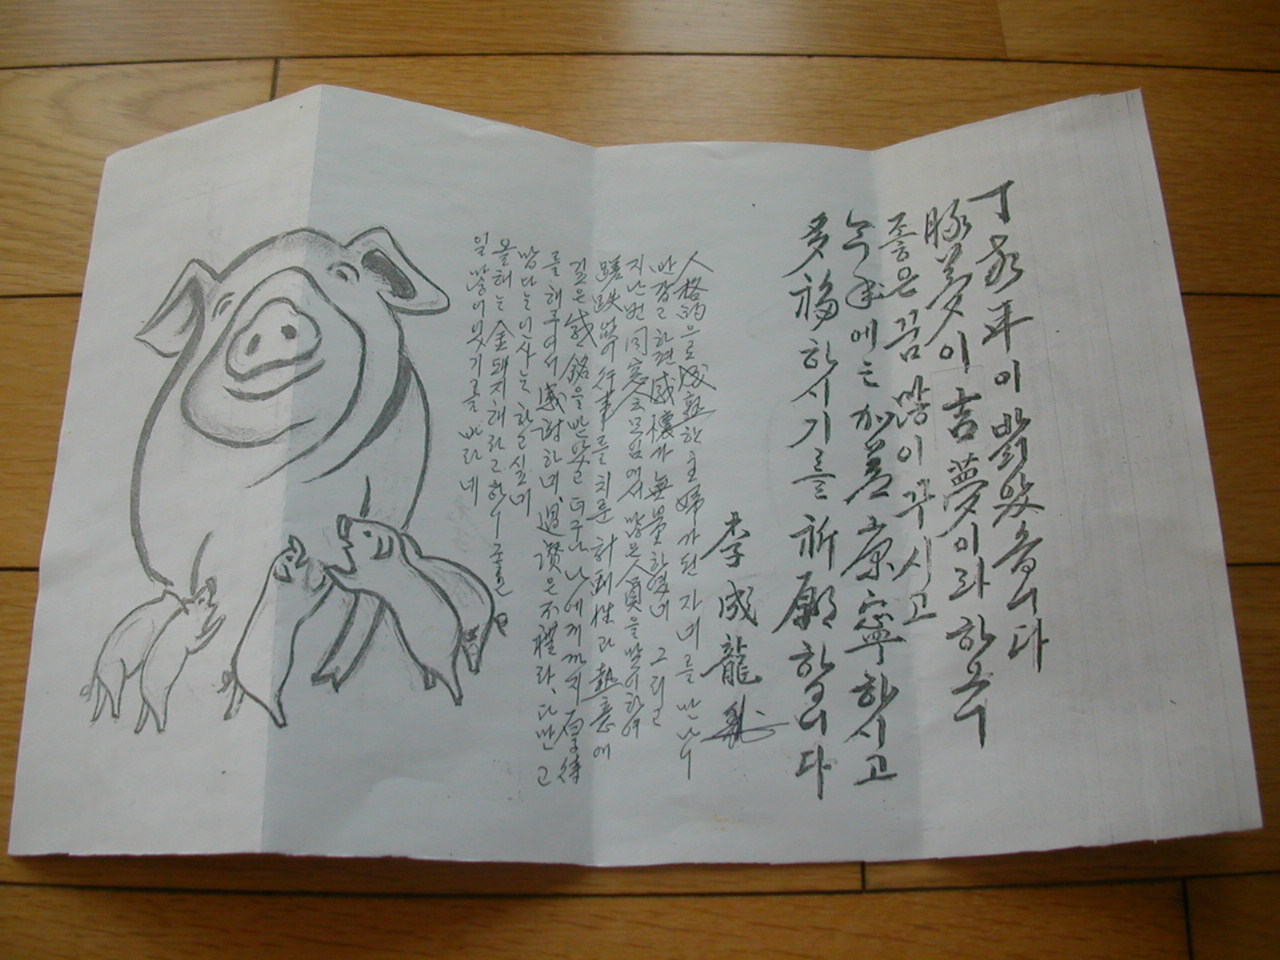 丁亥年이 밝았습니다
豚夢이 吉夢이라 하오니
좋은 꿈 많이 꾸시고
今年에는 加一層 康寧하시고
多福하시기를 祈願합니다
李成龍
人格的으로 成熟한 主婦가 된 자네를 만나니
반갑고 한편 感懷가 無量하였네 그리고
지난번 同窓会 모임에서 많은 人員을 맞이하여
蹉跌 없이 行事를 치룬 計劃性과 熱意에
깊은 感銘을 받았고 더구나 나에게까지 厚待
를 해주어서 感謝하며, 過讚은 不穩라, 다만 고
맙다는 인사는 하고 싶네
올해는 金돼지해라고 하니 좋은
일 많이 있기를 바라네